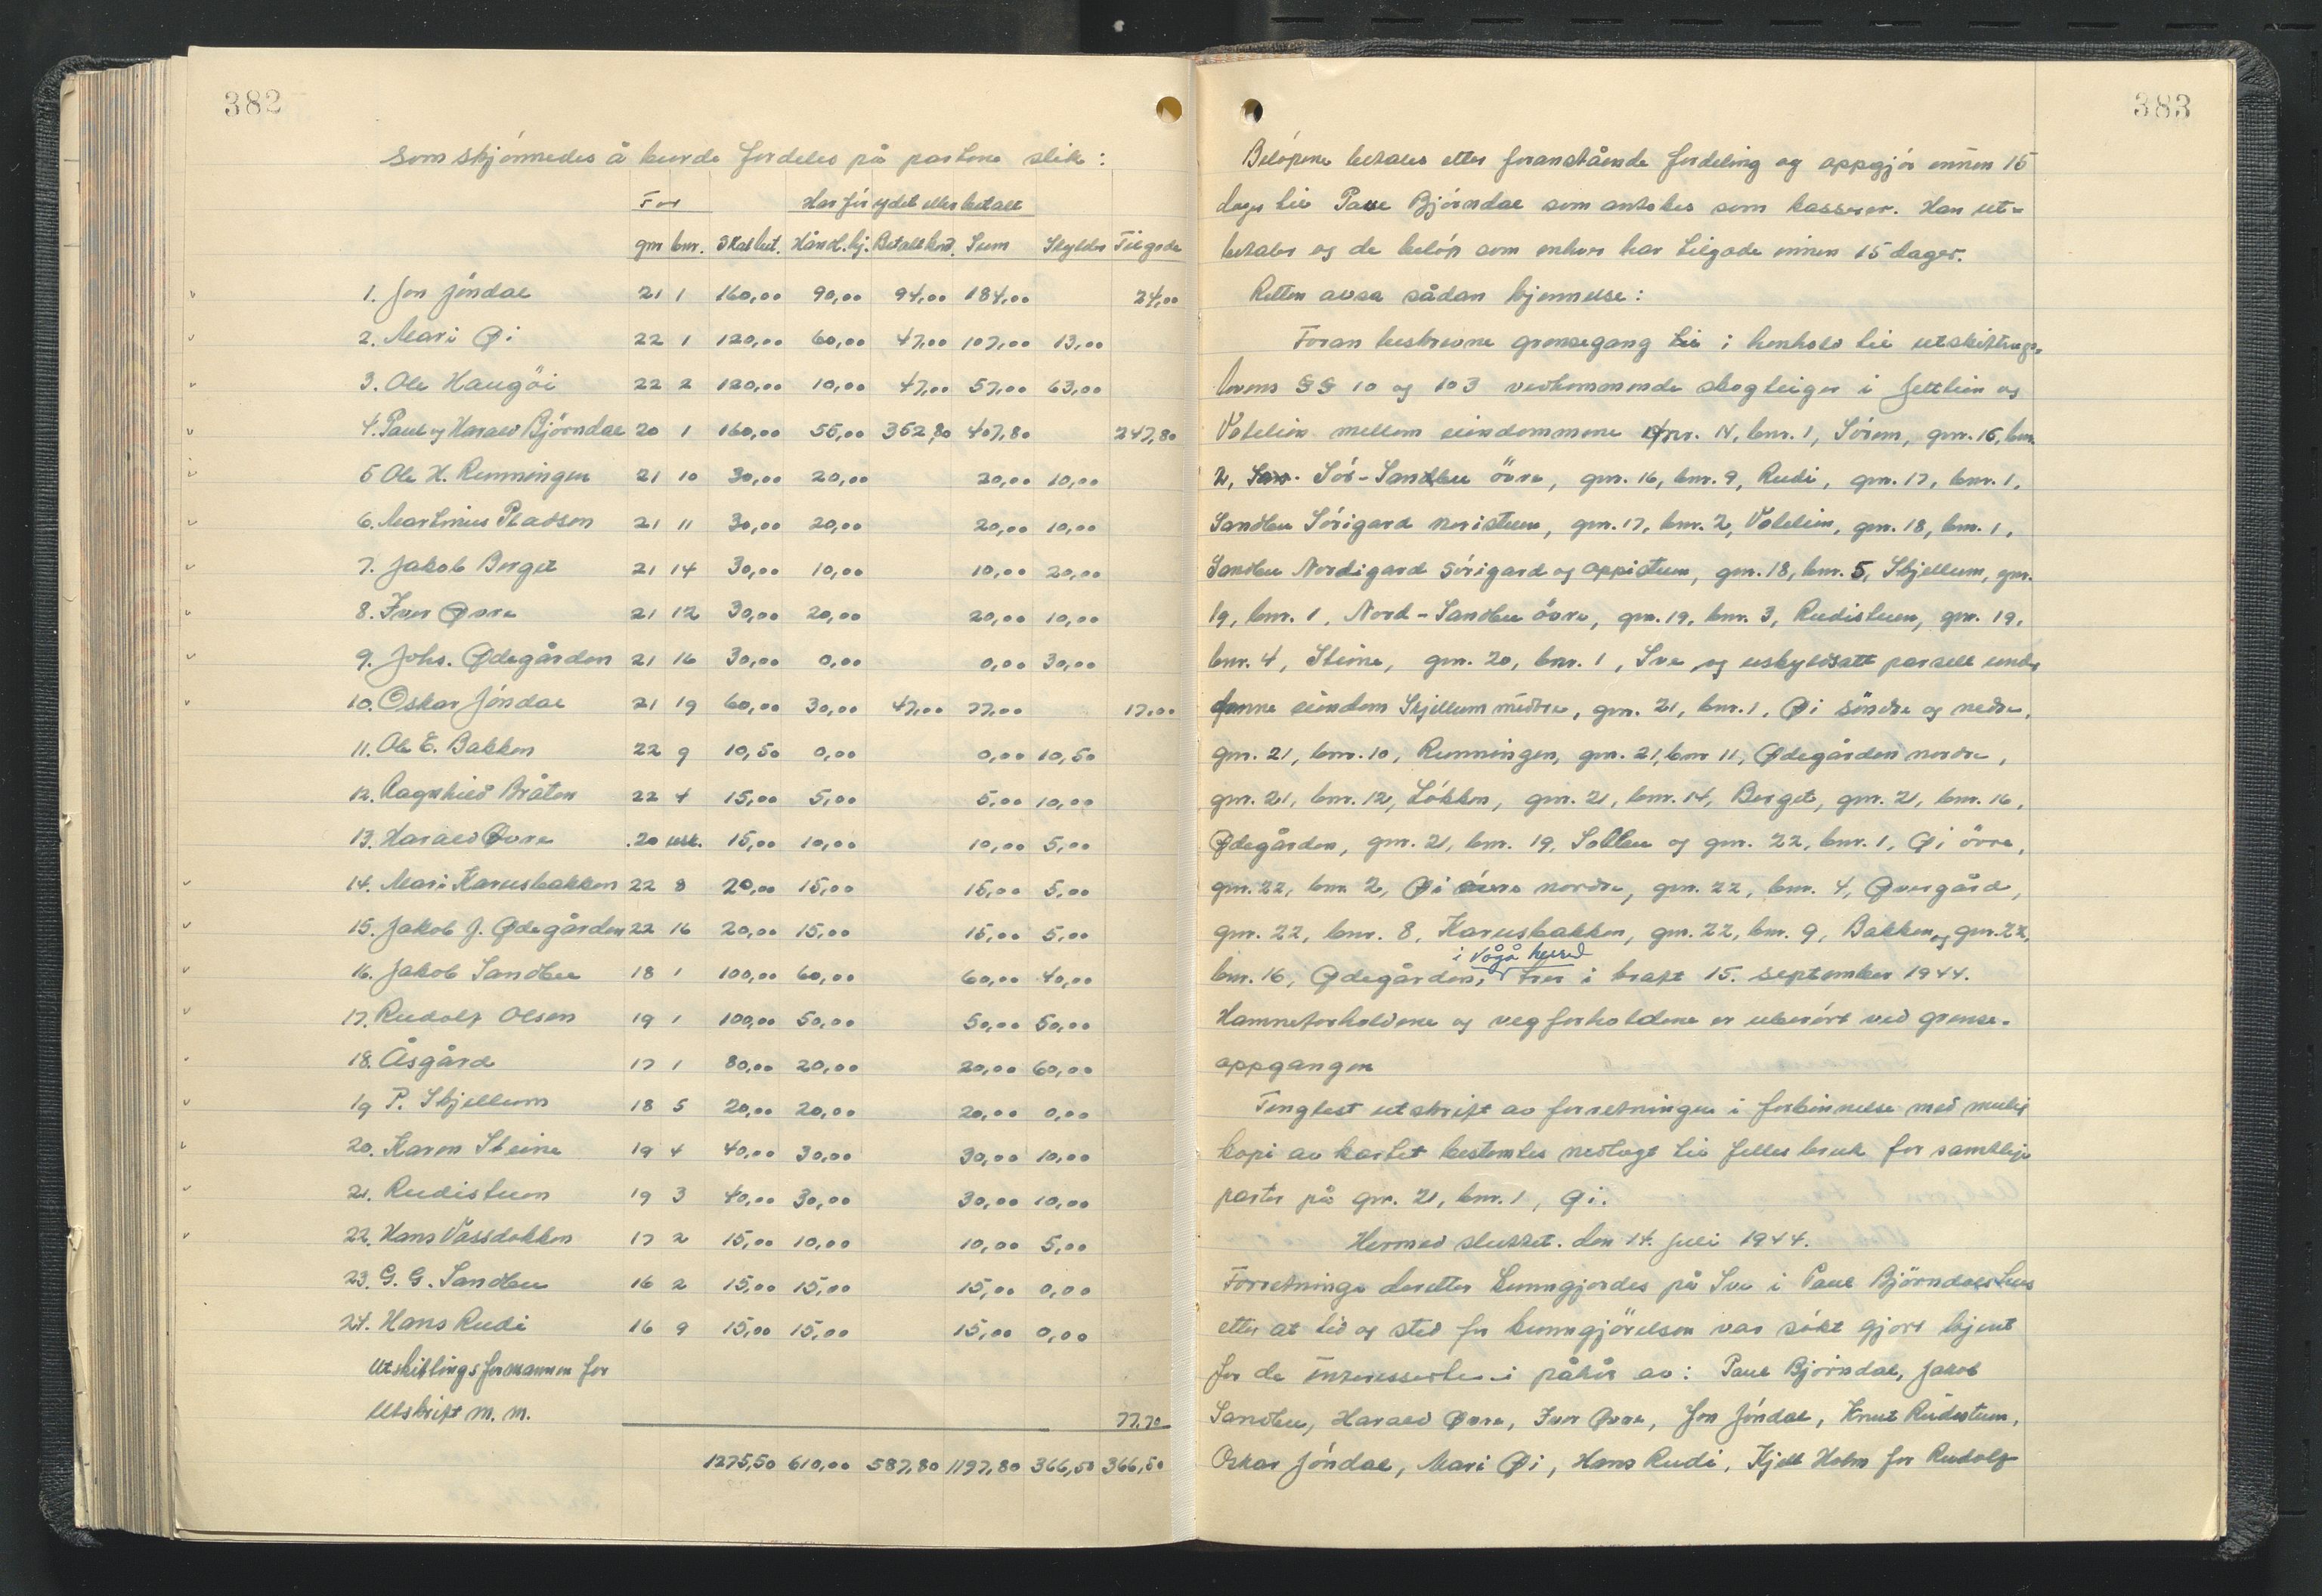 382
Som skjønnedes å burde fordeles på partene slik:
For Har før ydet eller betalt
gnr bnr. Skal bet. Håndl. hj. Betalt kont. Sum Skylder Tilgode
1. Jon Jøndal 21 1 160,00 90,00 94,00 184,00 24,00
2. Mari Øi 22 1 120,00 60,00 47,00 107,00 13,00
3. Ole Haugøi 22 2 120,00 10,00 47,00 57,00 63,00
4. Paul og Harald Bjørndal 20 1 160,00 55,00 352,80 407,80 247,80
5 Ole H. Runningen 21 10 30,00 20,00 20,00 10,00
6. Martinus Pladsen 21 11 30,00 20,00 20,00 10,00
7. Jakob Berget 21 14 30,00 10,00 10,00 20,00
8. Iver Øvre 21 12 30,00 20,00 20,00 10,00
9. Johs. Ødegården 21 16 30,00 0,00 0,00 30,00
10. Oskar Jøndal 21 19 60,00 30,00 47,00 77,00 17,00
11. Ole E. Bakken 22 9 10,50 0,00 0,00 10,50
12. Ragnhild Bråten 22 4 15,00 5,00 5,00 10,00
13. Harald Øvre 20 usk. 15,00 10,00 10,00 5,00
14. Mari Karusbakken 22 8 20,00 15,00 15,00 5,00
15. Jakob J. Ødegården 22 16 20,00 15,00 15,00 5,00
16. Jakob Sandbu 18 1 100,00 60,00 60,00 40,00
17. Rudolf Olsen 19 1 100,00 50,00 50,00 50,00
18. Åsgård 17 1 80,00 20,00 20,00 60,00
19 P. Skjellum 18 5 20,00 20,00 20,00 0,00
20. Karen Steine 19 4 40,00 30,00 30,00 10,00
21. Rudistuen 19 3 40,00 30,00 30,00 10,00
22. Hans Vassdokken 17 2 15,00 10,00 10,00 5,00
23. G. G. Sandbu 16 2 15,00 15,00 15,00 0,00
24. Hans Rudi 16 9 15,00 15,00 15,00 0,00
Utskiftingsformannen for
Utskrift m. m. 77,70
1275,50 610,00 587,80 1197,80 366,50 366,50
383
Beløpene betales etter foranstående fordeling og oppgjør innen 15
dager til Paul Bjørndal som antokes som kasserer. Han ut-
betaler og de beløp som enhver har tilgode innen 15 dager.
Retten avsa sådan kjennelse:
Foran beskrevne grensegang til i henhold til utskiftings-
lovens §§ 10 og 103 vedkommende skogteiger i Jettlien og
Vølelien mellem eiendommene gnr. 14, bnr. 1, Sørem, gnr. 16, bnr.
2, Sør-Sandbu øvre, gnr. 16, bnr. 9, Rudi, gnr. 17, bnr. 1,
Sandbu Sørigard noristuen, gnr. 17, bnr. 2, Vølelien, gnr. 18, bnr. 1,
Sandbu Nordigard Sørigard og oppistuen, gnr. 18, bnr. 5, Skjellum, gnr.
19, bnr. 1, Nord-Sandbu øvre, gnr. 19, bnr. 3, Rudistuen, gnr. 19,
bnr. 4, Steine, gnr. 20, bnr. 1, Sve og uskyldsatt parsell under
denne eiendom Skjellum midtre, gnr. 21, bnr. 1, Øi søndre og nedre,
gnr. 21, bnr. 10, Runningen, gnr. 21, bnr 11, Ødegården nordre,
gnr. 21, bnr. 12, Løkken, gnr. 21, bnr. 14, Berget, gnr. 21, bnr. 16,
Ødegården, gnr. 21, bnr. 19, Solbu og gnr. 22, bnr. 1, Øi øvre,
gnr. 22, bnr. 2, Øi øvre nordre, gnr. 22, bnr. 4, Øvergård,
gnr. 22, bnr. 8, Karusbakken, gnr. 22, bnr. 9, Bakken, og gnr. 22,
i Vågå herred
bnr. 16, Ødegården, trer i kraft 15. september 1944.
Hamneforholdene og vegforholdene er uberørt ved grense-
oppgangen
Tinglest utskrift av forretningen i forbinnelse med mulig
kopi av kartet bestemtes nedlagt til felles bruk for samtlige
parter på gnr. 21, bnr. 1, Øi.
Hermed sluttet. den 14. juli 1944.
Forretninga deretter kunngjordes på Sve i Paul Bjørndals hus
etter at tid og sted for kunngjørelsen var søkt gjort kjent
for de interesserte i påhør av: Paul Bjørndal, Jakob
Sandbu, Harald Øvre, Iver Øvre, Jon Jøndal, Knut Rudistuen,
Oskar Jøndal, Mari Øi, Hans Rudi, Kjell Holm for Rudolf